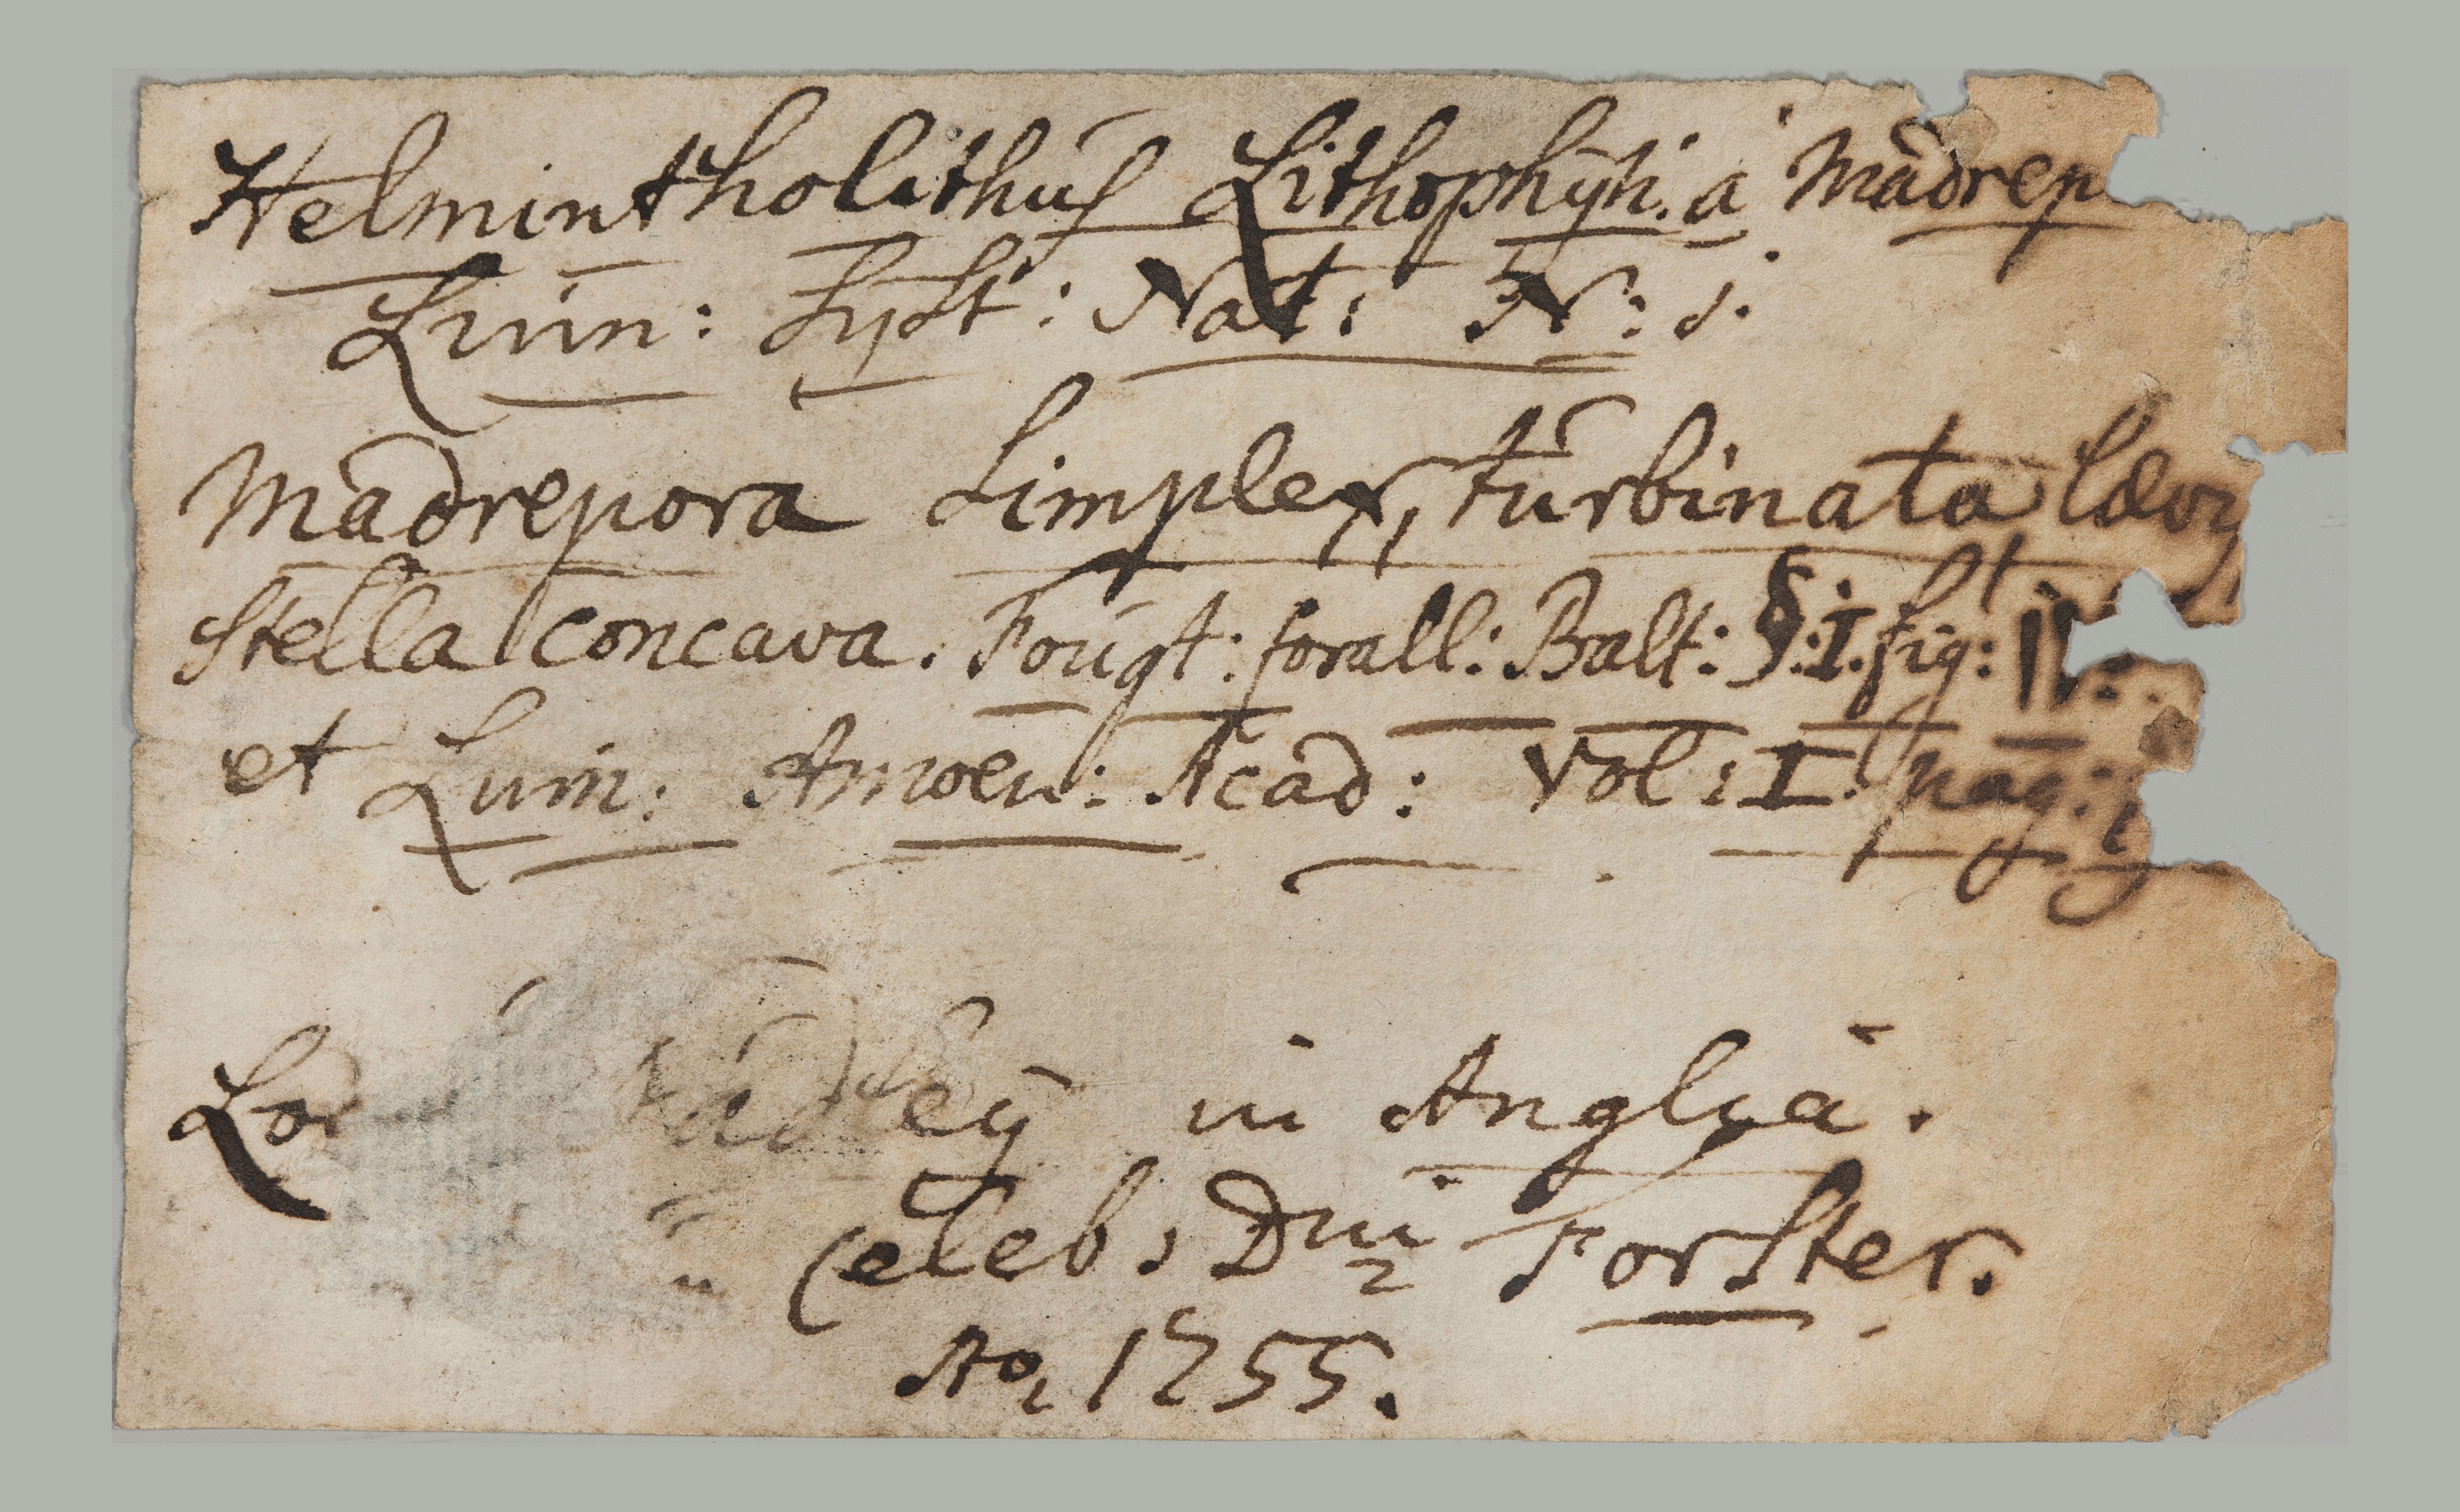 Helmintholithus Lithophyti. a Madrep
Linn: Syst: Nat: N: 1.
Madrepora simplex, turbinata læv
Stella concava. Fougt: corall: Balt: §: I. fig: IV:
et Linn: Amoen: Acad: Vol: I. pag:
in Angliâ.
Celeb: Dni Forster.
Ao 1755.